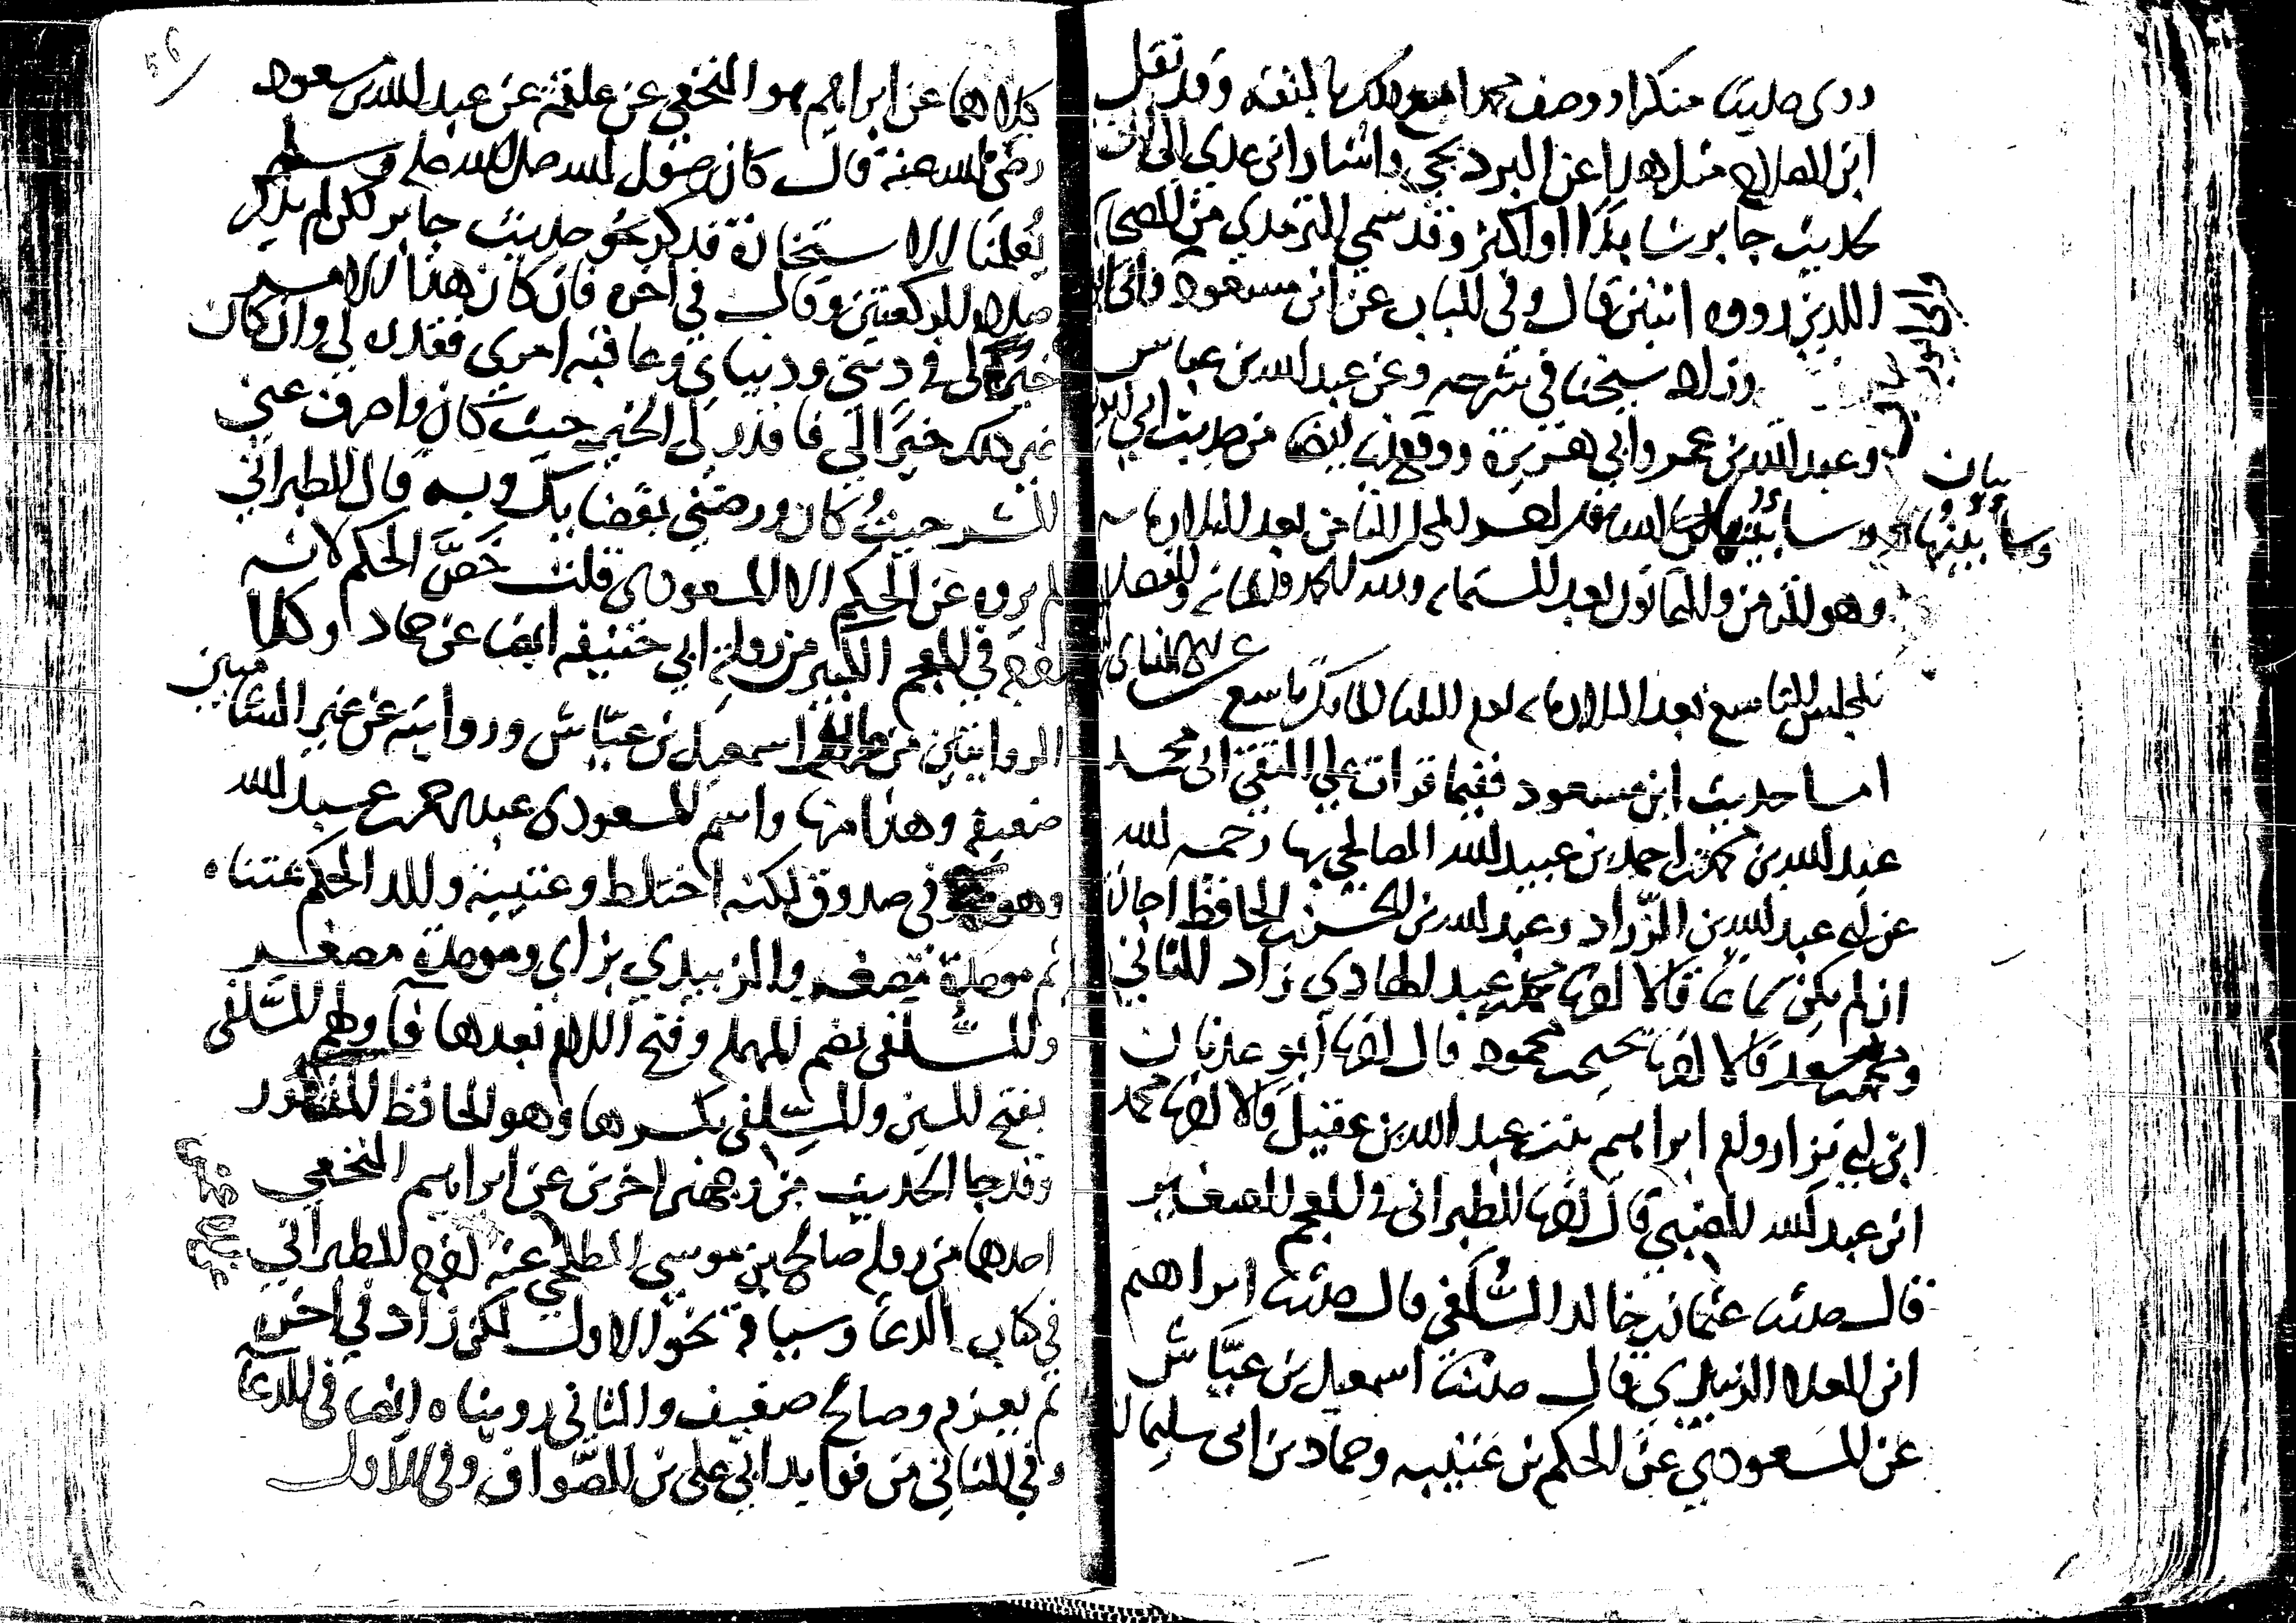 روى حديثا منكرا ووصف محمدا مع ذلك بالثقة وقد نقل
ابن الصلاح مثل هذا عن البرديجي وأشار ابن عدي الى ان
لحديث جابر شاهدا او اكثر وقد سمى الترمذي من الصحابة
الذين رووه اثنين قال وفي الباب عن ابن مسعود وابي ايوب
وزاد شيخنا في شرحه وعن عبد الله بن عباس
وعبد الله بن عمر وابي هريرة ووقع لنا ايضا من حديث ابي
بيان
وسأبينها
وسأبينها ان شاء الله تعالى اخر المجلس الثامن بعد الثلاثمائة
وهو الثامن والثمانون بعد الستمائة
المجلس التاسع بعد الثلاثمائة
اما حديث ابن مسعود ففيما قرات على التقي ابي محمد
عبد الله بن محمد بن احمد بن عبيد الله الصالحي بها رحمه الله
عن ابي عبد الله بن الزراد وعبد الله بن الحسن الحافظ اجازة
ان لم يكن سماعا قالا اخبرنا محمد بن عبد الهادي زاد الثاني
ومحمد بن سعد قالا اخبرنا يحيى بن محمود قال اخبرنا ابو عدنان
ابن ابي نزار وام ابراهيم بنت عبد الله بن عقيل قالا اخبرنا محمد
ابن عبد الله الضبي قال اخبرنا الطبراني في المعجم الصغير
قال حدثنا عثمان بن خالد السلفي قال حدثنا ابراهيم
ابن العلاء الزبيدي قال حدثنا اسمعيل بن عياش
عن المسعودي عن الحكم بن عتيبه وحماد بن ابي سليمان
56
كلاهما عن ابراهيم هو النخعي عن علقمة عن عبد الله بن مسعود
رضي الله عنه قال كان رسول الله صلى الله عليه وسلم
يعلمنا الاستخارة فذكر نحو حديث جابر لكن لم يذكر
صلاة الركعتين وقال في اخره فان كان هذا الامر
خيرا لي في ديني ودنياي وعاقبه امري فقدره لي وان كان
غير ذلك خيرا لي فاقدر لي الخير حيث كان واصرف عني
الشر حيث كان ورضني بقضايك وبه قال الطبراني
لم يروه عن الحكم الا المسعودي قلت خص الحكم لانه
اخرجه في المعجم الكبير من رواية ابي حنيفه ايضا عن حماد وكلا
الروايتين من طريق اسمعيل بن عياش وروايته عن غير الشاميين
ضعيفة وهذا منها واسم المسعودي عبد الرحمن بن عبد الله
وهو كوفي صدوق لكنه اختلط وعتيبة والد الحكم بمثناة
ثم موحدة مصغر والزبيدي بزاي وموحدة مصغر
والسلفي بضم المهملة وفتح اللام بعدها فا ولهم السلفي
بفتح السين والسلفي بكسرها وهو الحافظ المشهور
وقد جا الحديث من وجهين اخرين عن ابراهيم النخعي
احدهما من رواية صالح بن موسى الطلحي عنه اخرجه الطبراني
في كتاب الدعا وسياقه نحو الاول لكن زاد في اخره
ثم يعزم وصالح ضعيف والثاني رويناه ايضا في الدعا
وفي الثاني من فوايد ابي علي بن الصواف وفي الاول